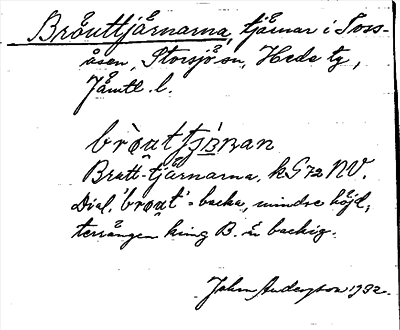 Bråuttjärnarna, tjärnar i Toss-
åsen, Storsjö sn, Hede tg,
Jämtl. l.
Bratt-tjärnarna, kG72 NV.
Dial. 'broat' = backa, mindre höjd;
terrängen kring B. är backig.
John Andersson 1932.